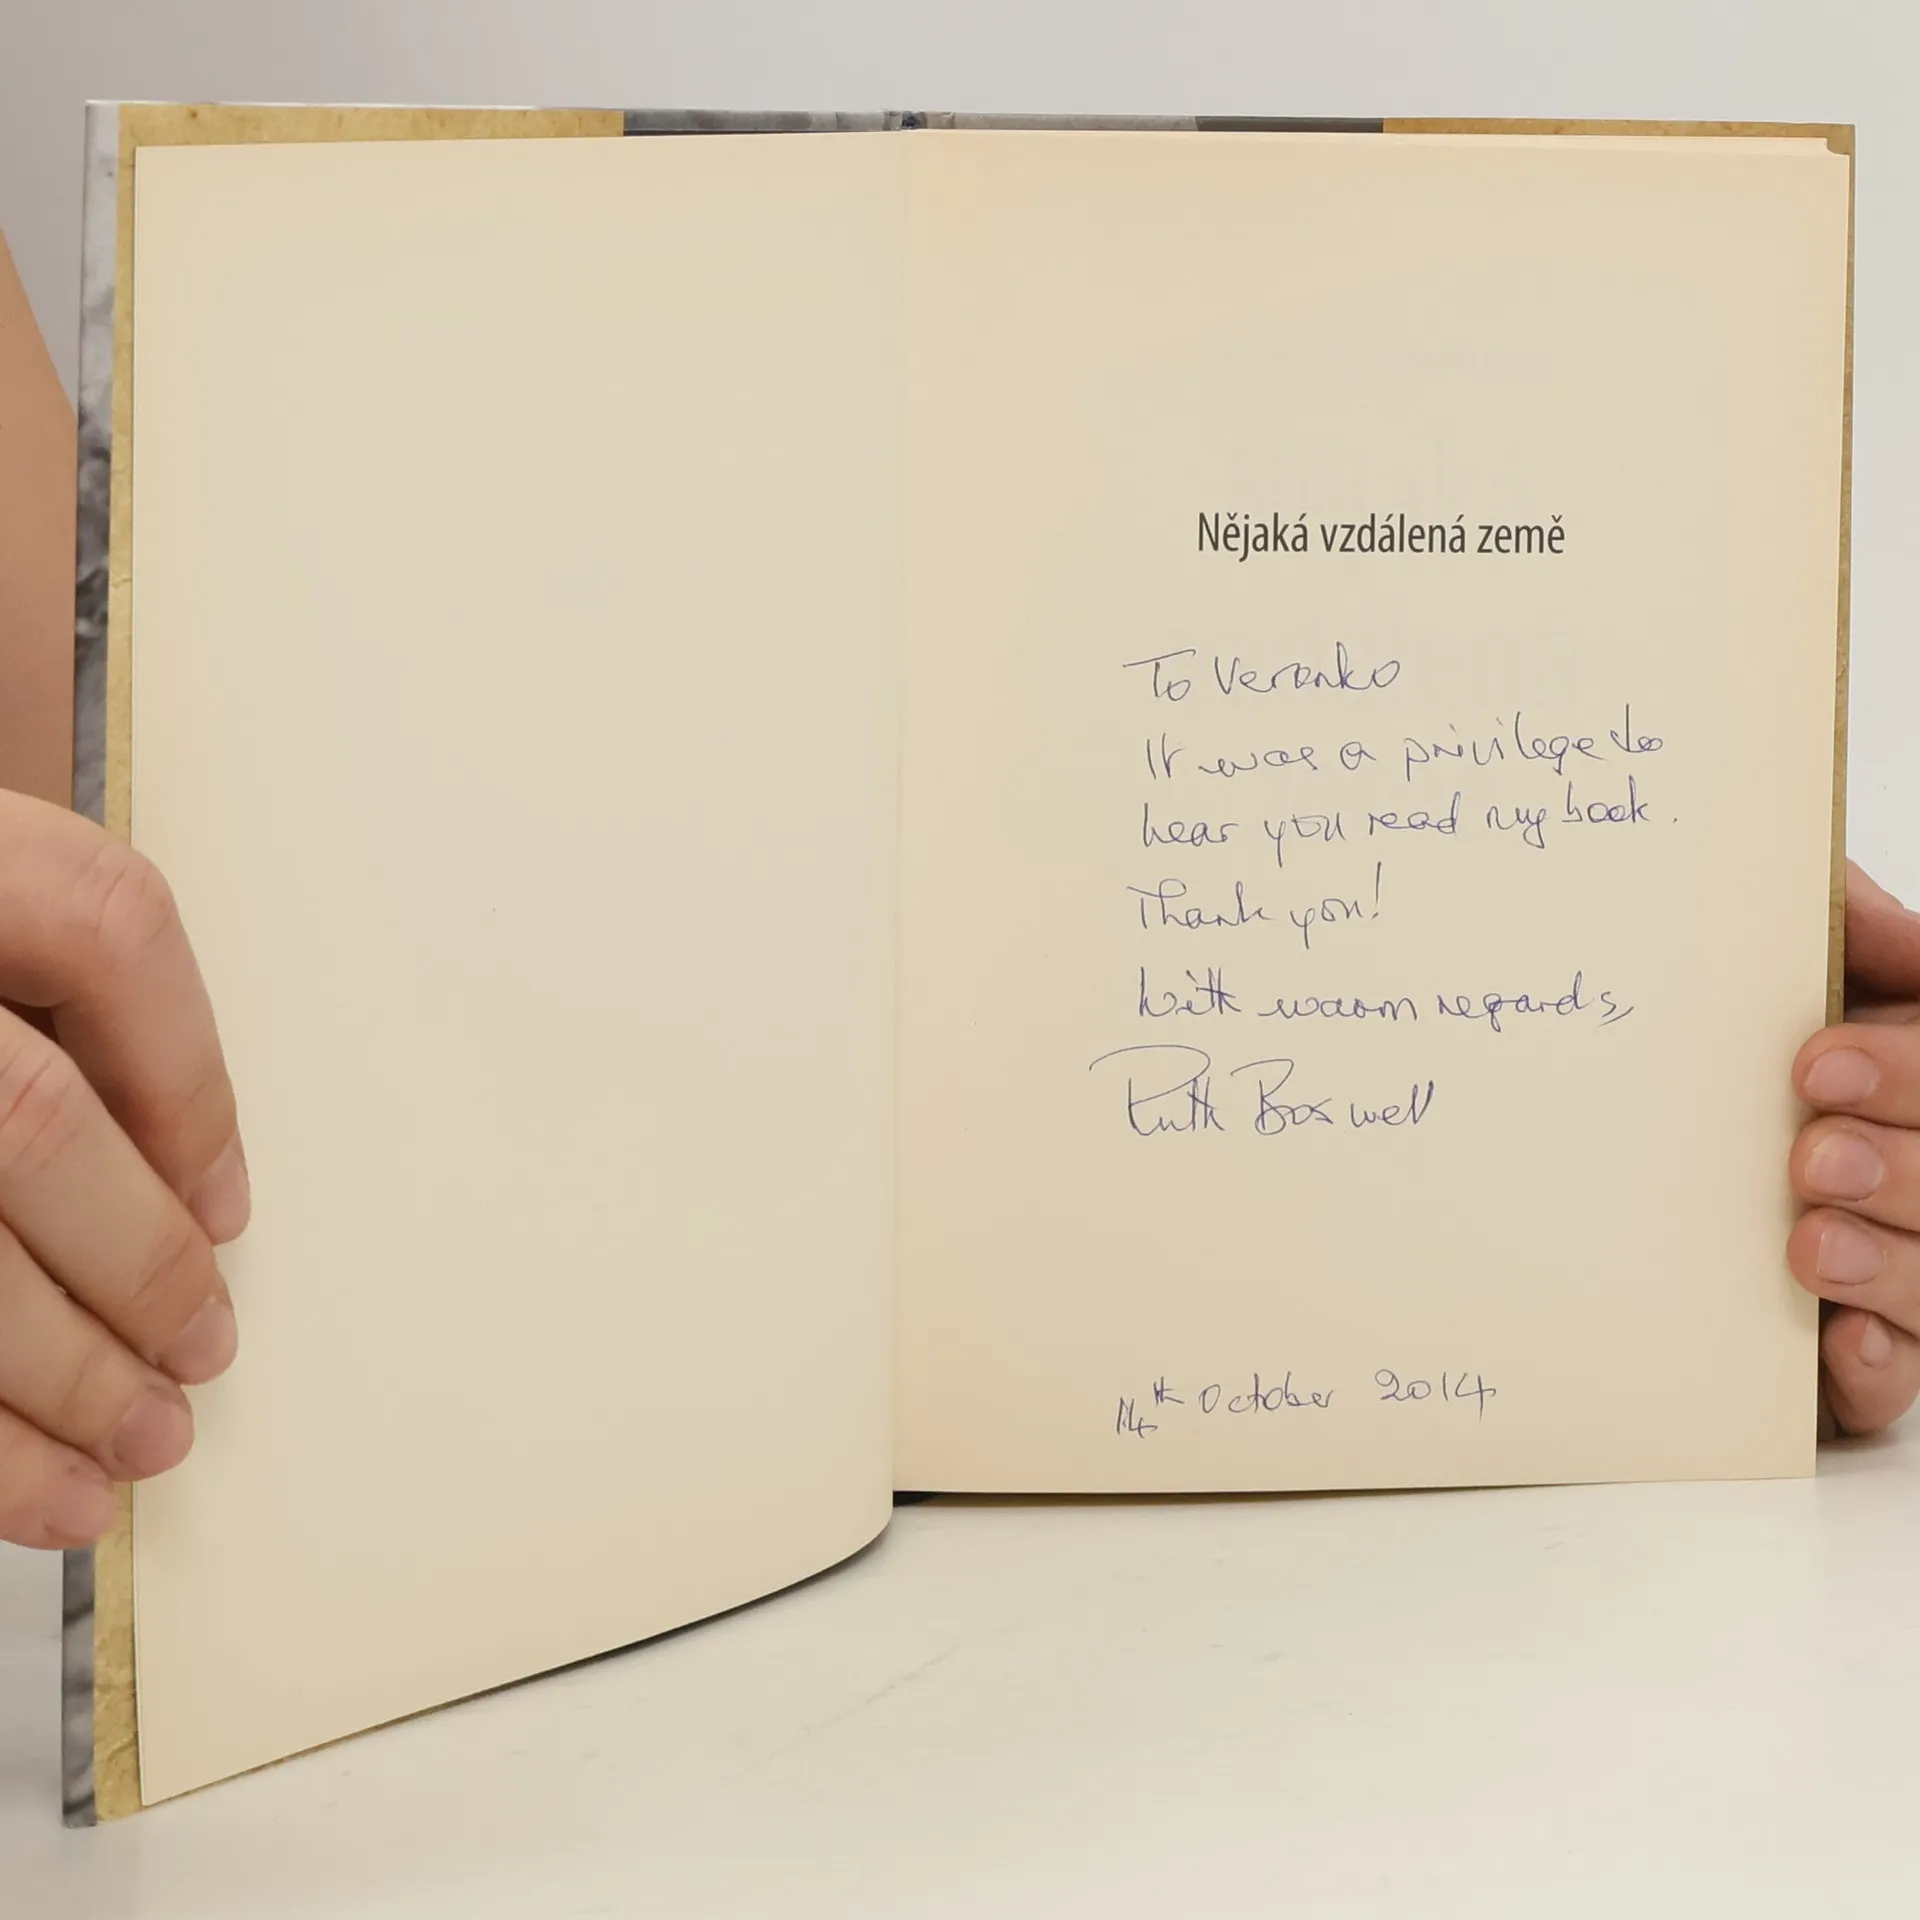 Nějaká vzdálená země
To Veronko
It was a privilege to
hear you read my book.
Thank you!
With warm regards,
Ruth Boswell
14th October 2014